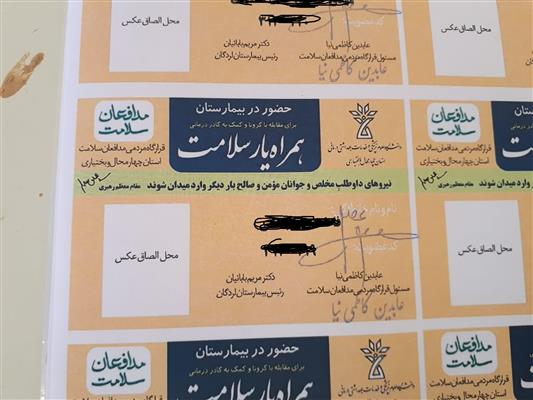 محل الصاق عکس
عابدین کاظمی نیا
مسئول قرارگاه مردمی مدافعان سلامت
دکتر مریم بابائیان
رئیس بیمارستان لردگان
عابدین کاظمی نیا
حضور در بیمارستان
برای مقابله با کرونا و کمک به کادر درمانی
همراه یار سلامت
مدافعان
سلامت
قرارگاه مردمی مدافعان سلامت
استان چهارمحال و بختیاری
نیروهای داوطلب مخلص و جوانان مؤمن و صالح بار دیگر وارد میدان شوند
مقام معظم رهبری
نام و نام خانوادگی:
کد عضویت:
محل الصاق عکس
عابدین کاظمی نیا
مسئول قرارگاه مردمی مدافعان سلامت
دکتر مریم بابائیان
رئیس بیمارستان لردگان
عابدین کاظمی نیا
مدافعان
سلامت
قرارگاه مردمی مدافعان سلامت
استان چهارمحال و بختیاری
مقام معظم رهبری
محل الصاق عکس
حضور در بیمارستان
برای مقابله با کرونا و کمک به کادر درمانی
همراه یار سلامت
مدافعان
سلامت
مدافعان
سلامت